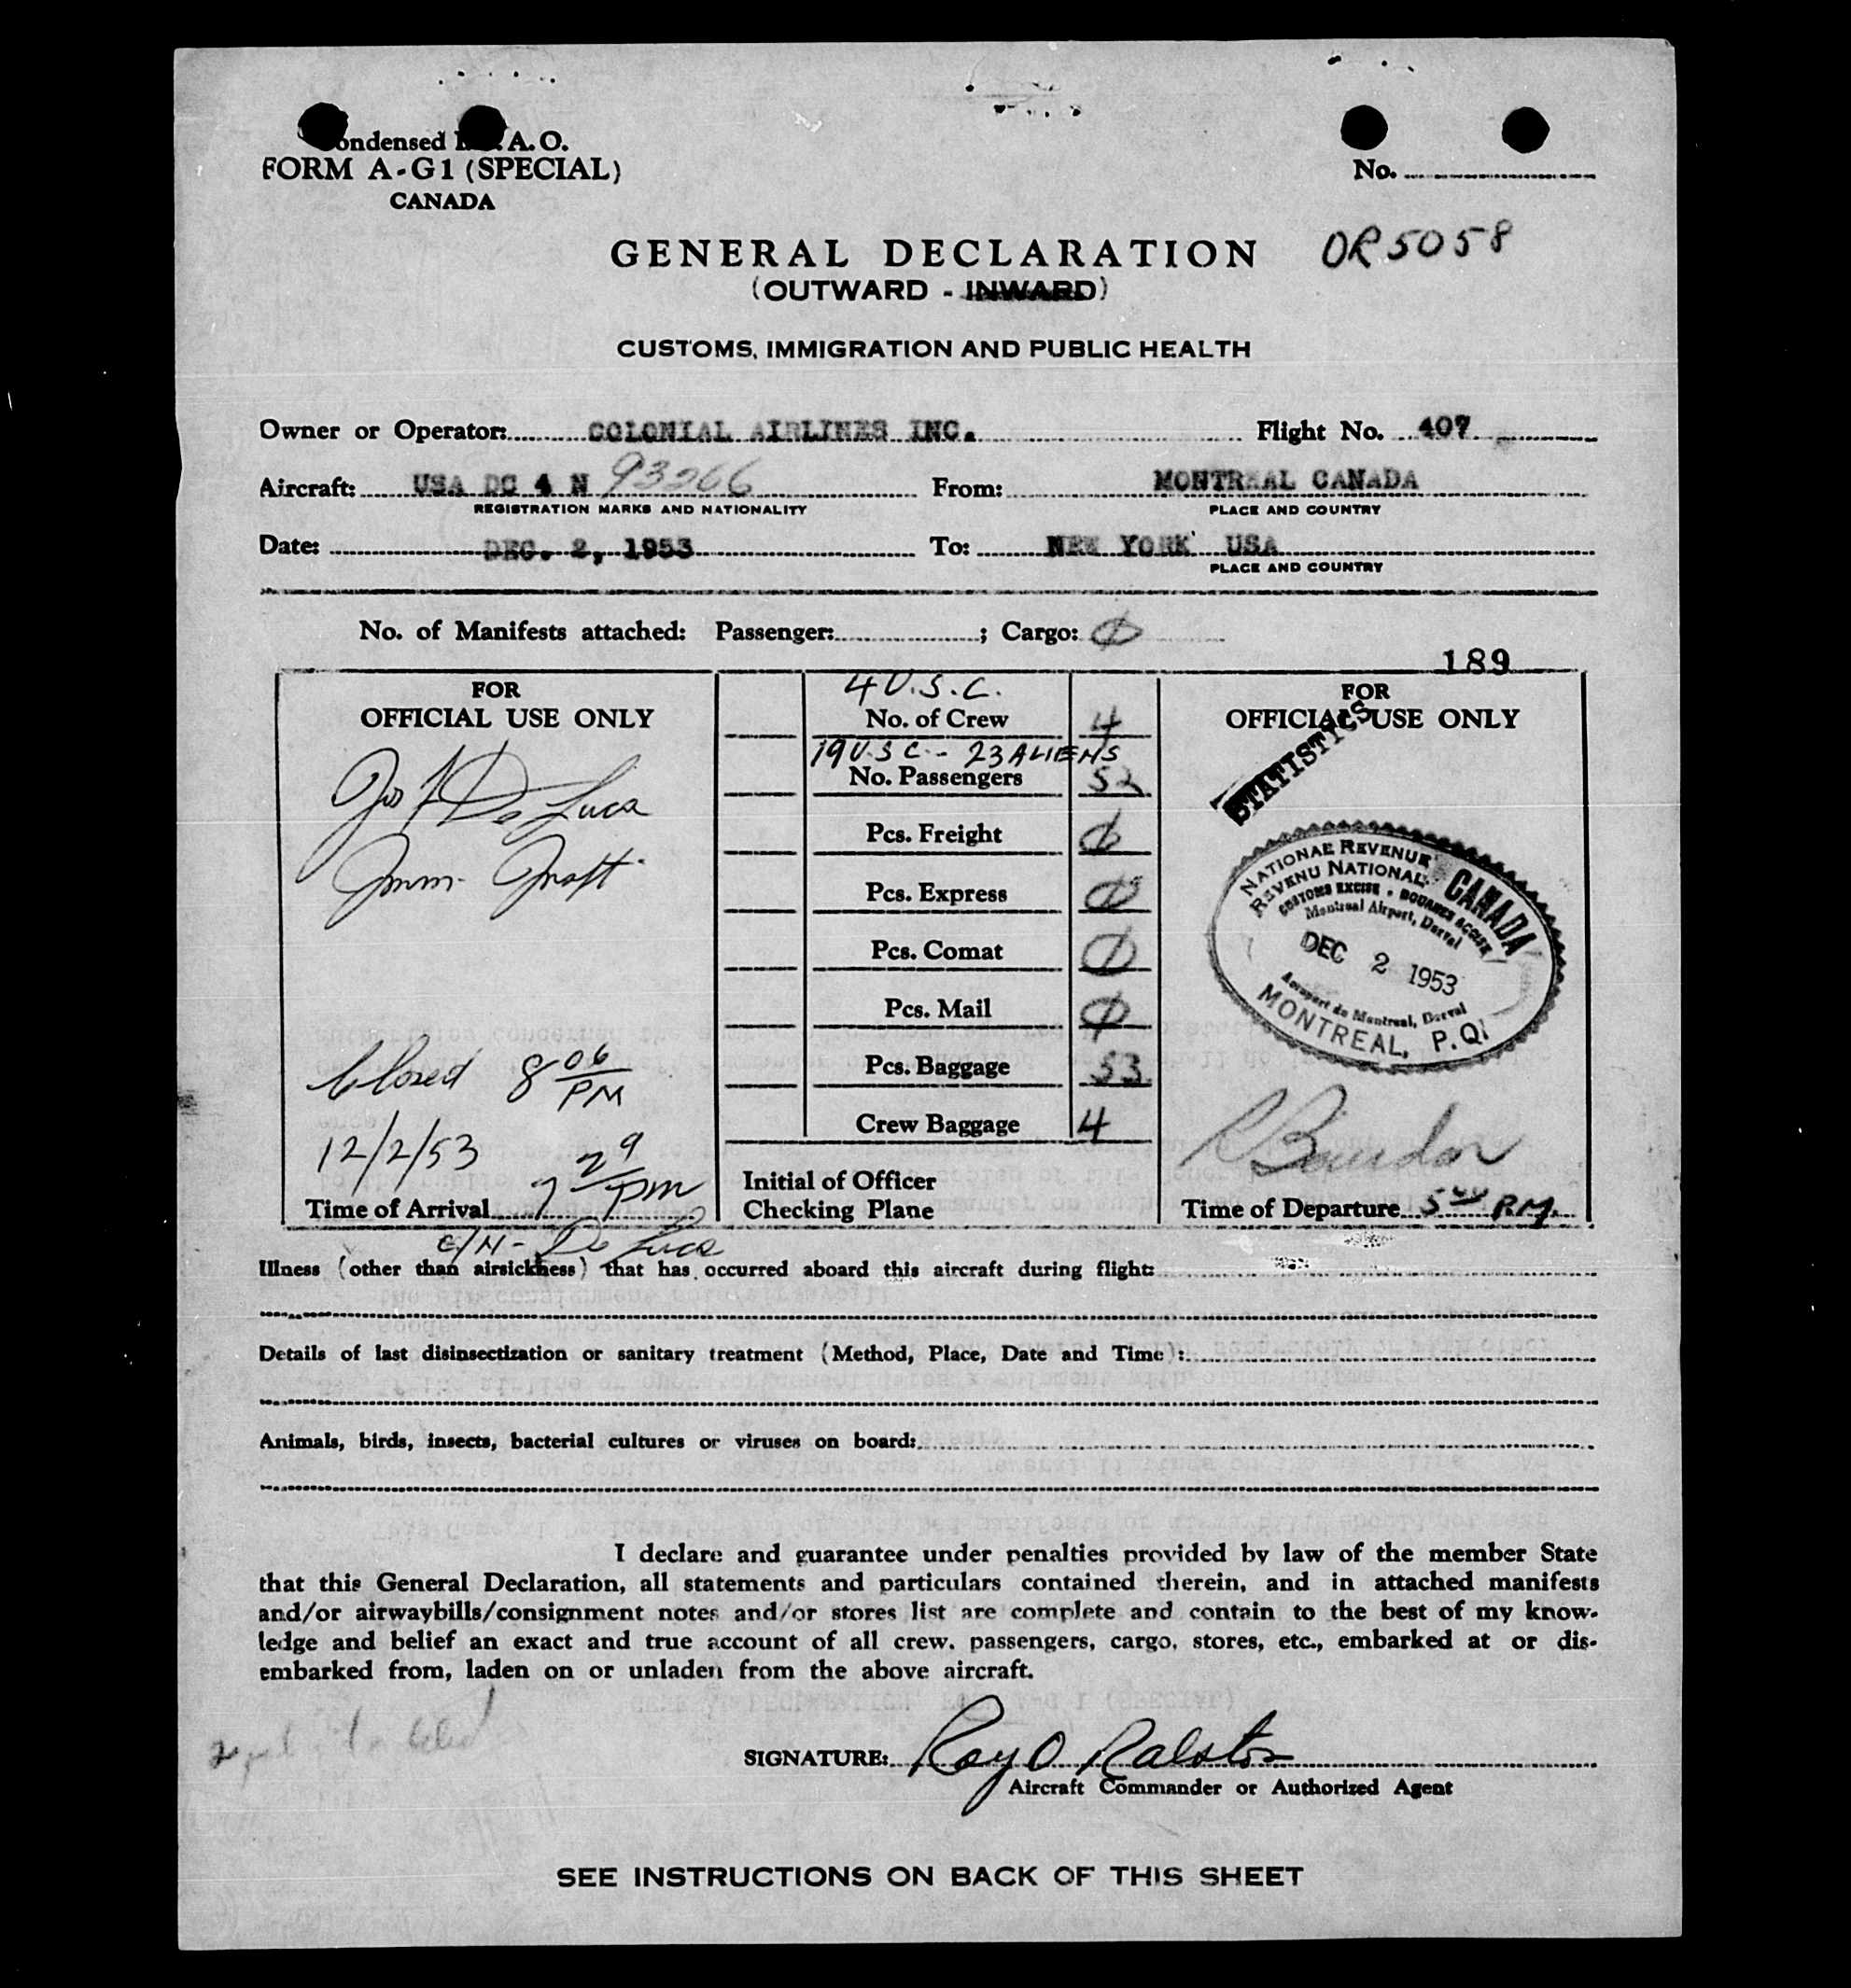 ondensed I. A. O.
FORM A-G1 (SPECIAL)
CANADA
No.
GENERAL DECLARATION
OR5058
(OUTWARD - INWARD)
CUSTOMS, IMMIGRATION AND PUBLIC HEALTH
Owner or Operator: COLONIAL AIRLINES INC. Flight No. 407
Aircraft: USA DC 4 N 93266 From: MONTREAL CANADA
REGISTRATION MARKS AND NATIONALITY PLACE AND COUNTRY
Date: DEC. 2, 1953 To: NEW YORK USA
PLACE AND COUNTRY
No. of Manifests attached: Passenger: ; Cargo: 0
189
FOR
OFFICIAL USE ONLY
De Luca
Imm.
Closed 8 06 PM
12/2/53
7 29 PM
Time of Arrival
De Luca
4 U.S.C.
No. of Crew 4
19 U.S.C. - 23 ALIENS
No. Passengers 52
Pcs. Freight 0
Pcs. Express 0
Pcs. Comat 0
Pcs. Mail 0
Pcs. Baggage 53
Crew Baggage 4
Initial of Officer
Checking Plane
FOR
OFFICIAL USE ONLY
STATISTICS
NATIONAL REVENUE
REVENU NATIONAL
CANADA
CUSTOMS EXCISE • DOUANES ACCISE
Montreal Airport, Dorval
DEC 2 1953
Aeroport de Montreal, Dorval
MONTREAL, P.Q.
Time of Departure 5 00 P.M.
Illness (other than airsickness) that has occurred aboard this aircraft during flight:
Details of last disinsectization or sanitary treatment (Method, Place, Date and Time):
Animals, birds, insects, bacterial cultures or viruses on board:
I declare and guarantee under penalties provided by law of the member State
that this General Declaration, all statements and particulars contained therein, and in attached manifests
and/or airwaybills/consignment notes and/or stores list are complete and contain to the best of my know-
ledge and belief an exact and true account of all crew, passengers, cargo, stores, etc., embarked at or dis-
embarked from, laden on or unladen from the above aircraft.
SIGNATURE: Roy O Ralston
Aircraft Commander or Authorized Agent
SEE INSTRUCTIONS ON BACK OF THIS SHEET